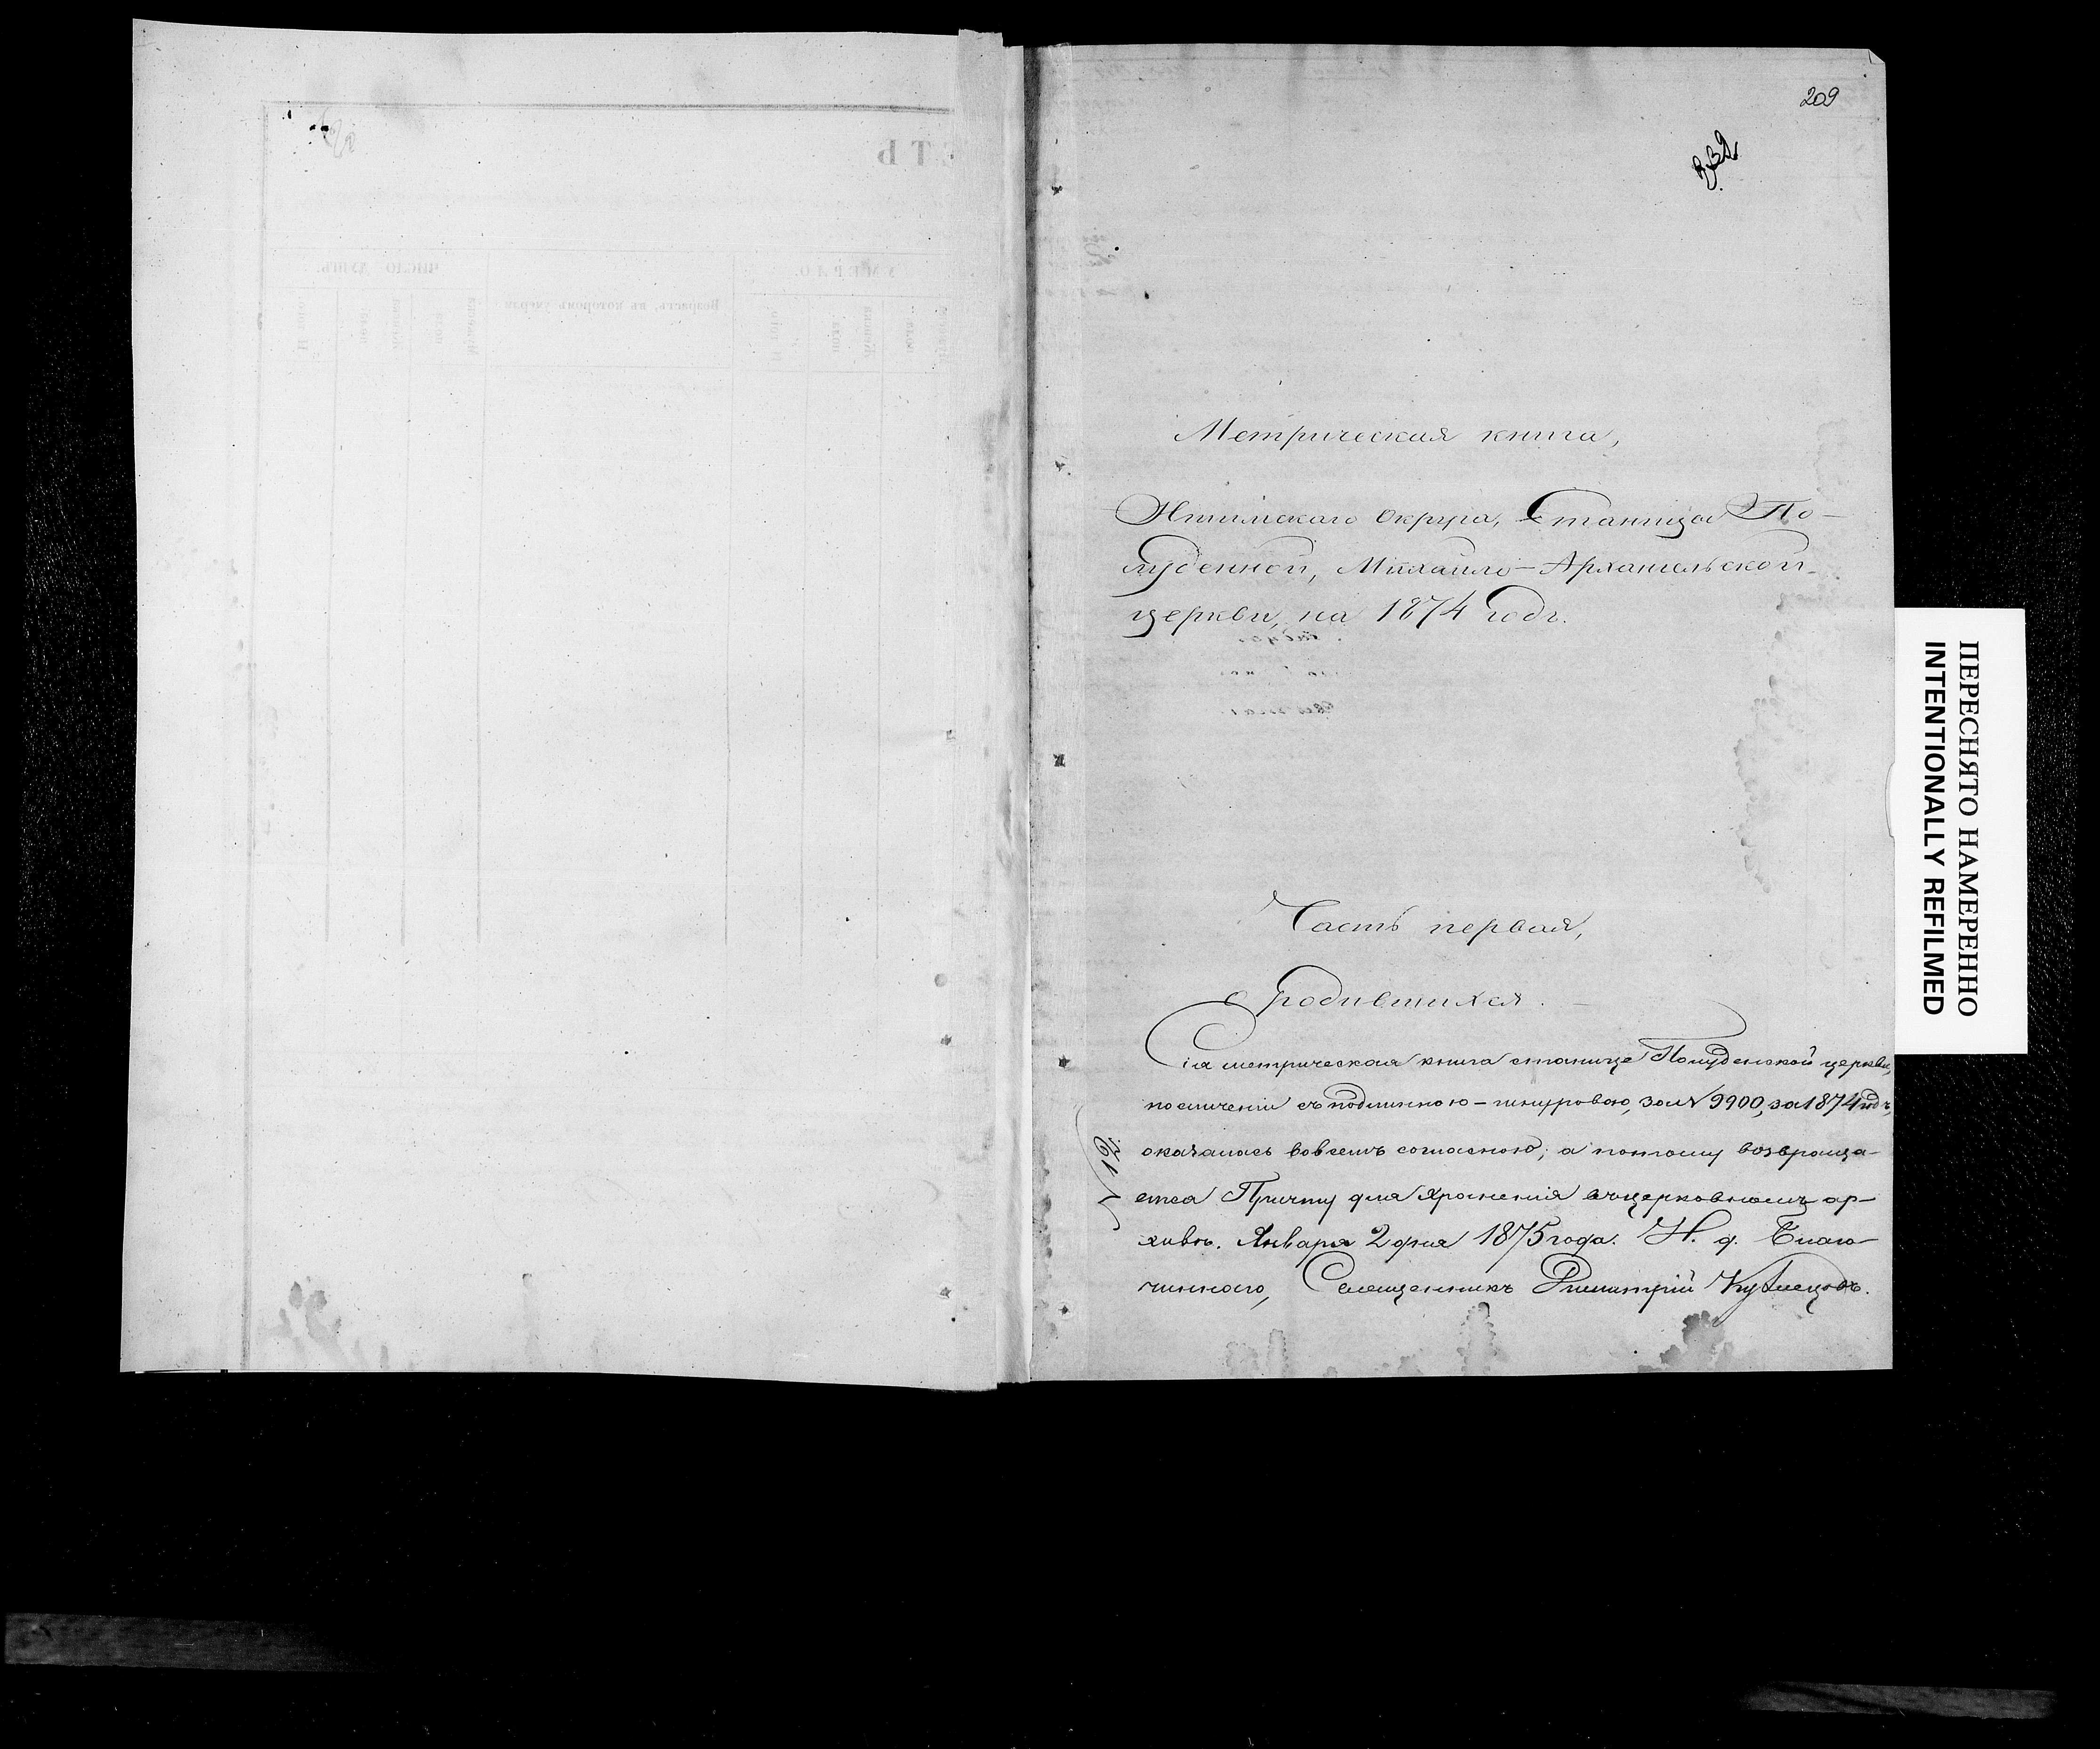 209
332
Метрическая книга,
Ишимскаго Округа, Станицы По-
луденной, Михаило-Архангельской
церкви, на 1874 годъ.
Часть первая,
о родившихся.
Сія метрическая книга станице Полуденской церкви,
по сличеніи съ подлинною-шнуровою, за № 9900, за 1874 годъ,
оказалась во всемъ согласною; а потому возвраща-
ется Причту для храненія въ церковномъ ар-
хивѣ. Января 2 дня 1875 года. И. д. Благо-
чиннаго, Священникъ Димитрій Кузнецовъ.
ПЕРЕСНЯТО НАМЕРЕННО
INTENTIONALLY REFILMED
ЧИСЛО ДУШЪ.
Возрастъ, въ которомъ умерли
УМЕРЛО.